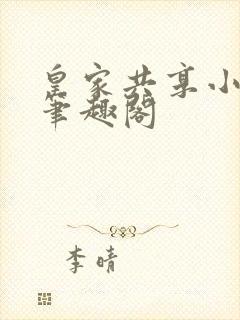 皇家共享小
笔趣阁
李晴